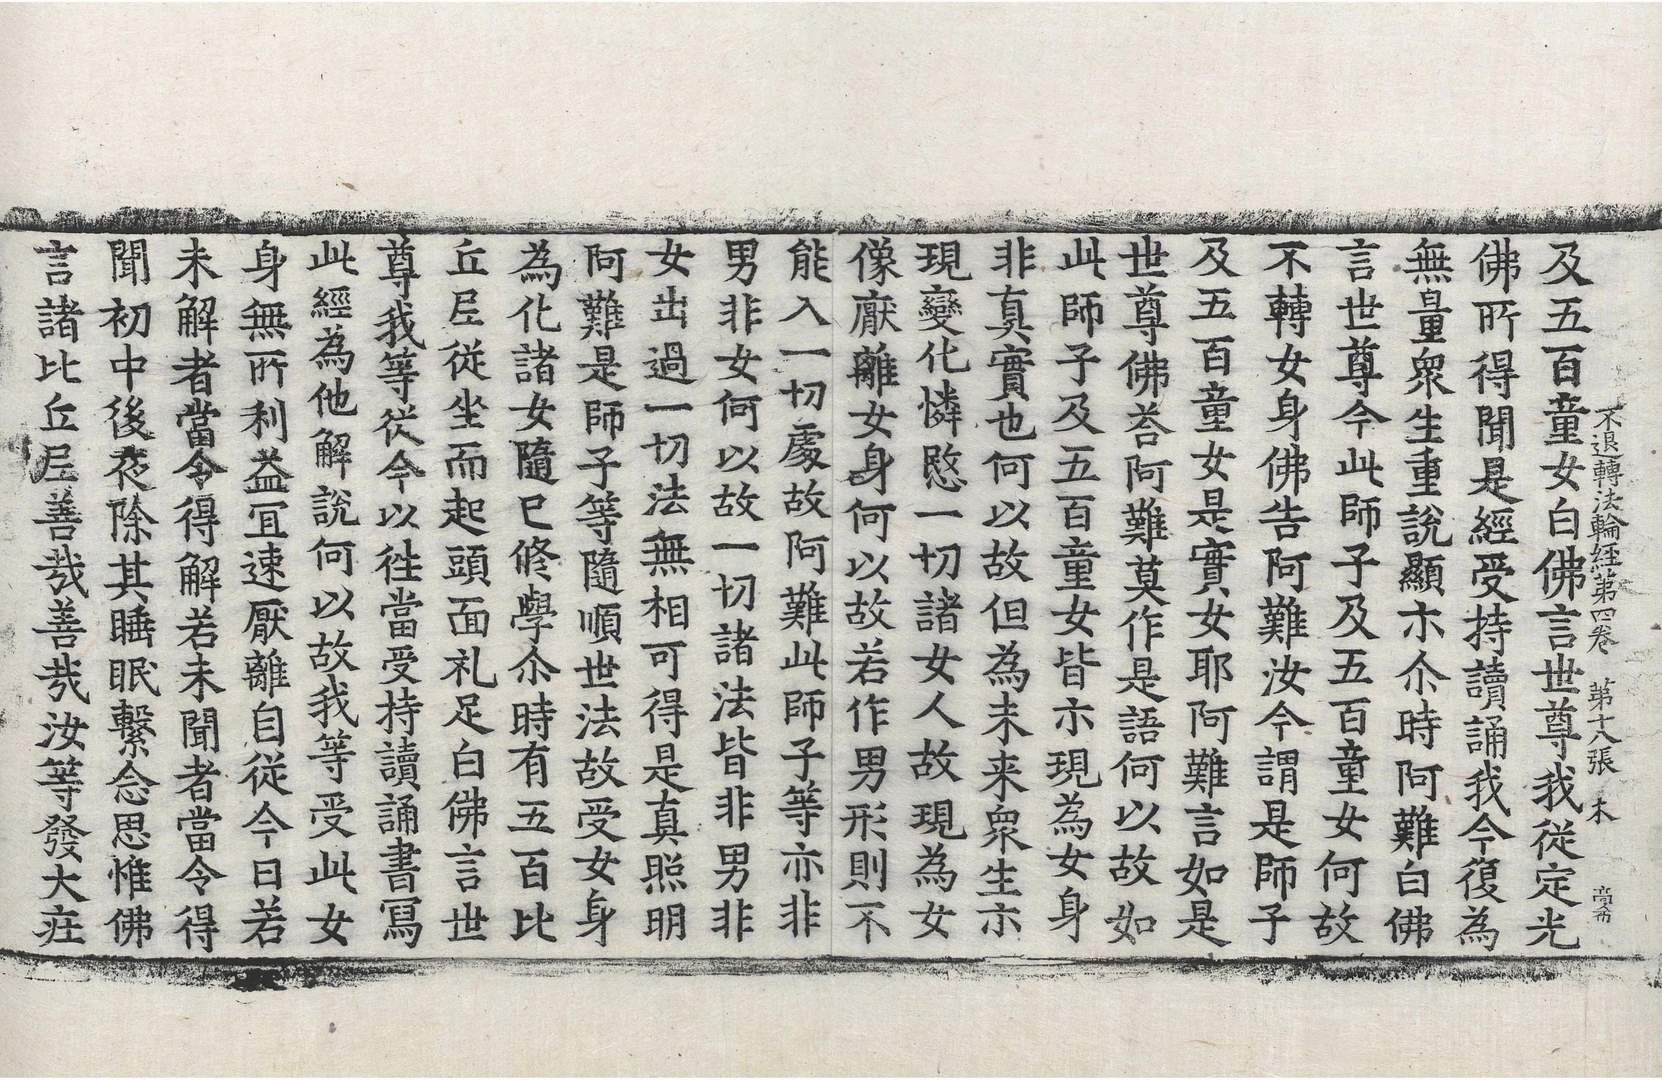 不退轉法輪經第四卷 第十八張 木
及五百童女白佛言世尊我従定光
佛所得聞是經受持讀誦我今復為
無量衆生重說顯示尒時阿難白佛
言世尊今此師子及五百童女何故
不轉女身佛告阿難汝今謂是師子
及五百童女是實女耶阿難言如是
世尊佛荅阿難莫作是語何以故如
此師子及五百童女皆示現為女身
非真實也何以故但為未来衆生示
現變化憐愍一切諸女人故現為女
像厭離女身何以故若作男形則不
能入一切處故阿難此師子等亦非
男非女何以故一切諸法皆非男非
女出過一切法無相可得是真照明
阿難是師子等隨順世法故受女身
為化諸女隨已修學尒時有五百比
丘尼従坐而起頭面礼足白佛言世
尊我等従今以往當受持讀誦書寫
此經為他解說何以故我等受此女
身無所利益冝速厭離自従今日若
未解者當令得解若未聞者當令得
聞初中後夜除其睡眠繫念思惟佛
言諸比丘尼善哉善哉汝等發大疟